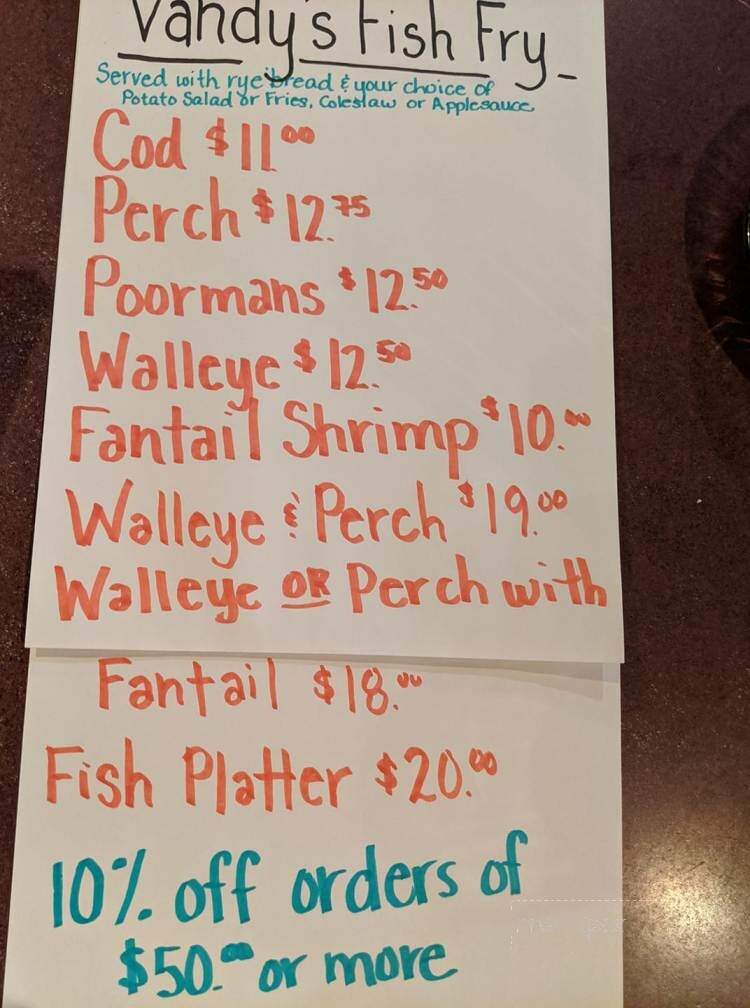 Vandy's Fish Fry
Served with rye bread & your choice of
Potato Salad or Fries, Coleslaw or Applesauce
Cod $11.00
Perch $12.75
Poormans $12.50
Walleye $12.50
Fantail Shrimp $10.00
Walleye & Perch $19.00
Walleye OR Perch with
Fantail $18.00
Fish Platter $20.00
10% off orders of
$50.00 or more